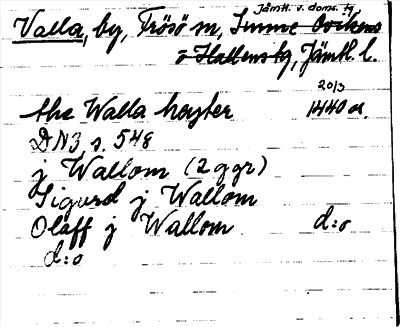 Jämtl. v. doms. tg,
Valla, by, Frösö sn, Sunne Ovikens
o Hallens tg, Jämtl. l.
20/3
the Walla høyter 1440 a.
DN3 s. 548
j Wallom (2 ggr)
Sigurd j Wallom
Olaff j Wallom d:o
d:o